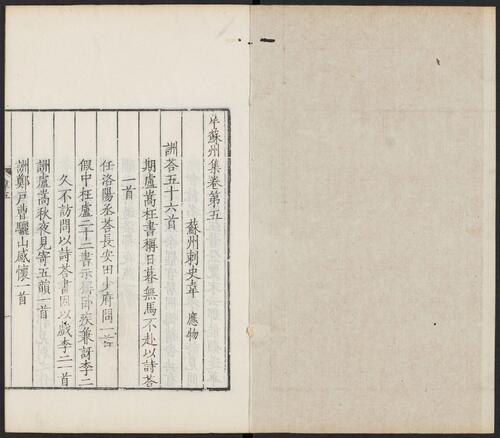 韋蘇州集卷第五
蘇州刺史韋 應物
詶荅五十六首
期盧嵩枉書稱日暮無馬不赴以詩荅
一首
任洛陽丞荅長安田少府問一首
假中枉盧二十二書示稱臥疾兼訝李二
久不訪問以詩荅書因以戲李二一首
詶盧嵩秋夜見寄五韻一首
詶鄭戶曹驪山感懷一首